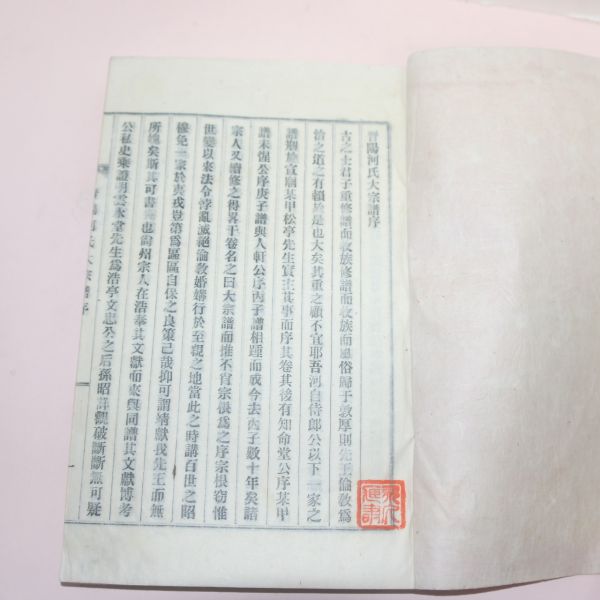 晉陽河氏大宗譜序
古之士君子重修譜而收族修譜而收族而風俗歸于敦厚則先王倫敎爲
治之道之有賴於是也大矣其重之顧不宜耶吾河自侍郎公以下一家之
譜刱於宣廟某甲松亭先生實主其事而序其卷其後有知命堂公序某甲
譜未惺公序庚子譜與人軒公序丙子譜相踵而成今去丙子數十年矣諸
宗人又續修之得畧干卷名之曰大宗譜而推不肖宗根爲之序宗根窃惟
世變以來法令悖亂滅絕倫敎婚媾行於至親之地當此之時講百世之昭
穆免一家於夷戎豈第爲區區自保之良策已哉抑可謂靖獻我先王而無
所愧矣斯其可書也尙州宗人在浩奉其文獻而來與同譜其文獻博考
公私史乘證明雲水堂先生爲浩亭文忠公之后孫昭詳觀破斷斷無可疑
大宗譜序
一